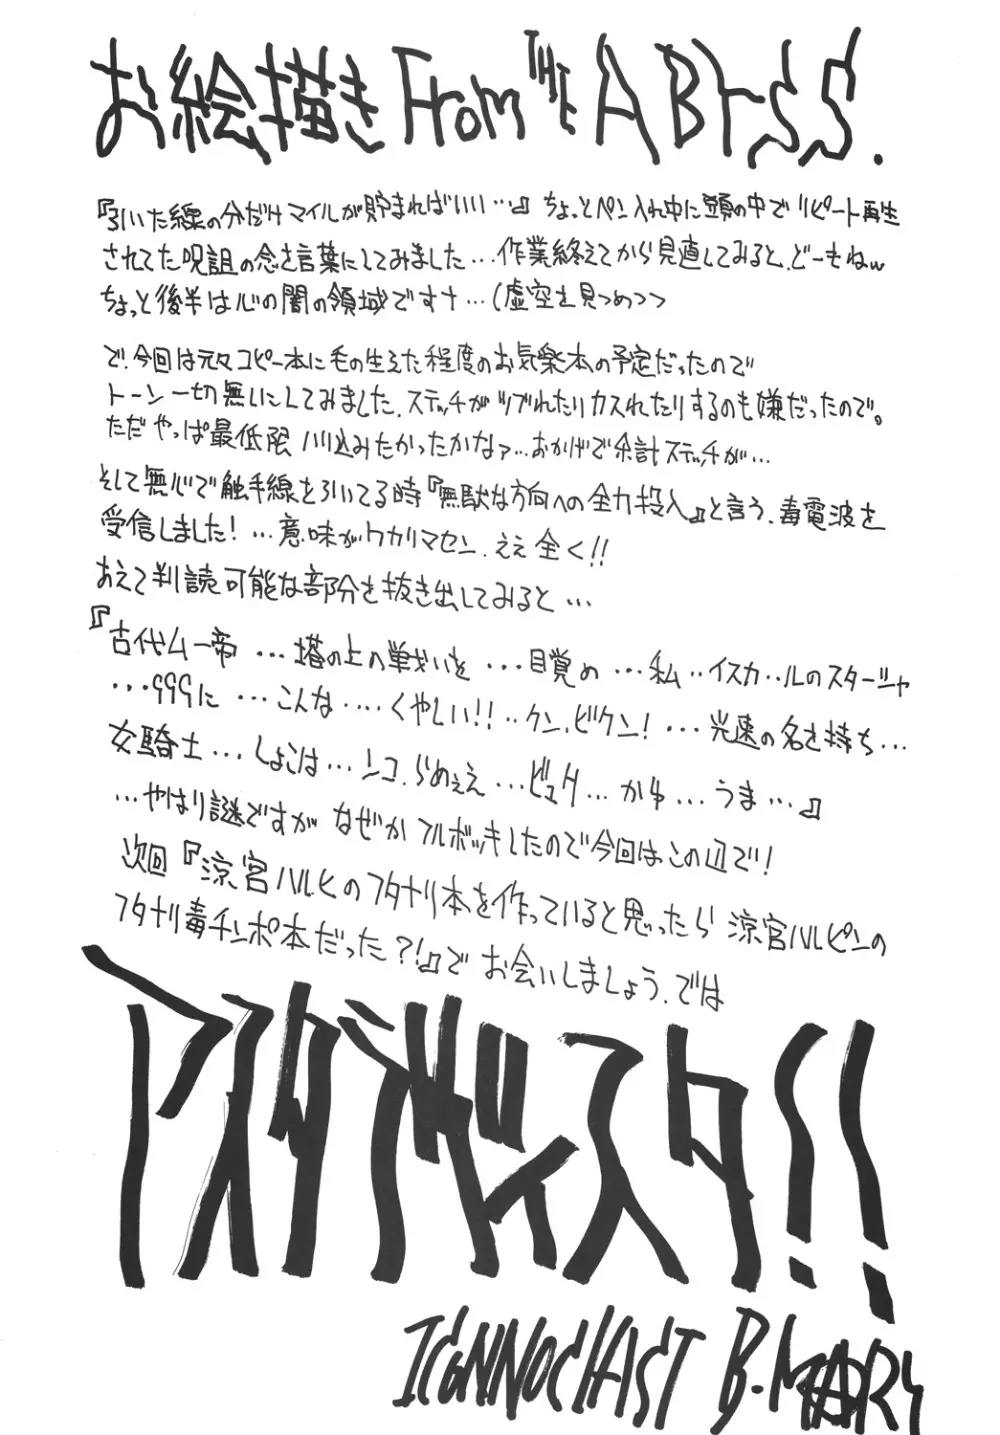 お絵描き From THE ABYSS.
『引いた線の分だけマイルが貯まればいい…』ちょっとペン入れ中に頭の中でリピート再生
されてた呪詛の念を言葉にしてみました…作業終えてから見直してみると、どーもねw
ちょっと後半は心の闇の領域です†…(虚空を見つめつつ
で、今回は元々コピー本に毛の生えた程度のお気楽本の予定だったので
トーン一切無しにしてみました、ステッチがツブれたりカスれたりするのも嫌だったので。
ただやっぱ最低限ハリ込みたかったかなァ…おかげで余計ステッチが…
そして無心で触手線を引いてる時『無駄な方向への全力投入』と言う、毒電波を
受信しました!…意味がワカリマセン、ええ全く!!
あえて判読可能な部分を抜き出してみると…
『古代ムー帝…塔の上の戦いを…目覚め…私…イスカ…ルのスタージャ
…999に…こんな…くやしい!!…クン、ビクン!…光速の名を持ち…
女騎士…しょこは…ンコ、らめぇえ…ビュタ…かゆ…うま…』
…やはり謎ですがなぜかフルボッキしたので今回はこの辺で!
次回『涼宮ハルヒのフタナリ本を作っていると思ったら涼宮ハルピンの
フタナリ毒チンポ本だった?!』でお会いしましょう、では
アスタラビスタ!!
ICONNOCLAST B-MARY